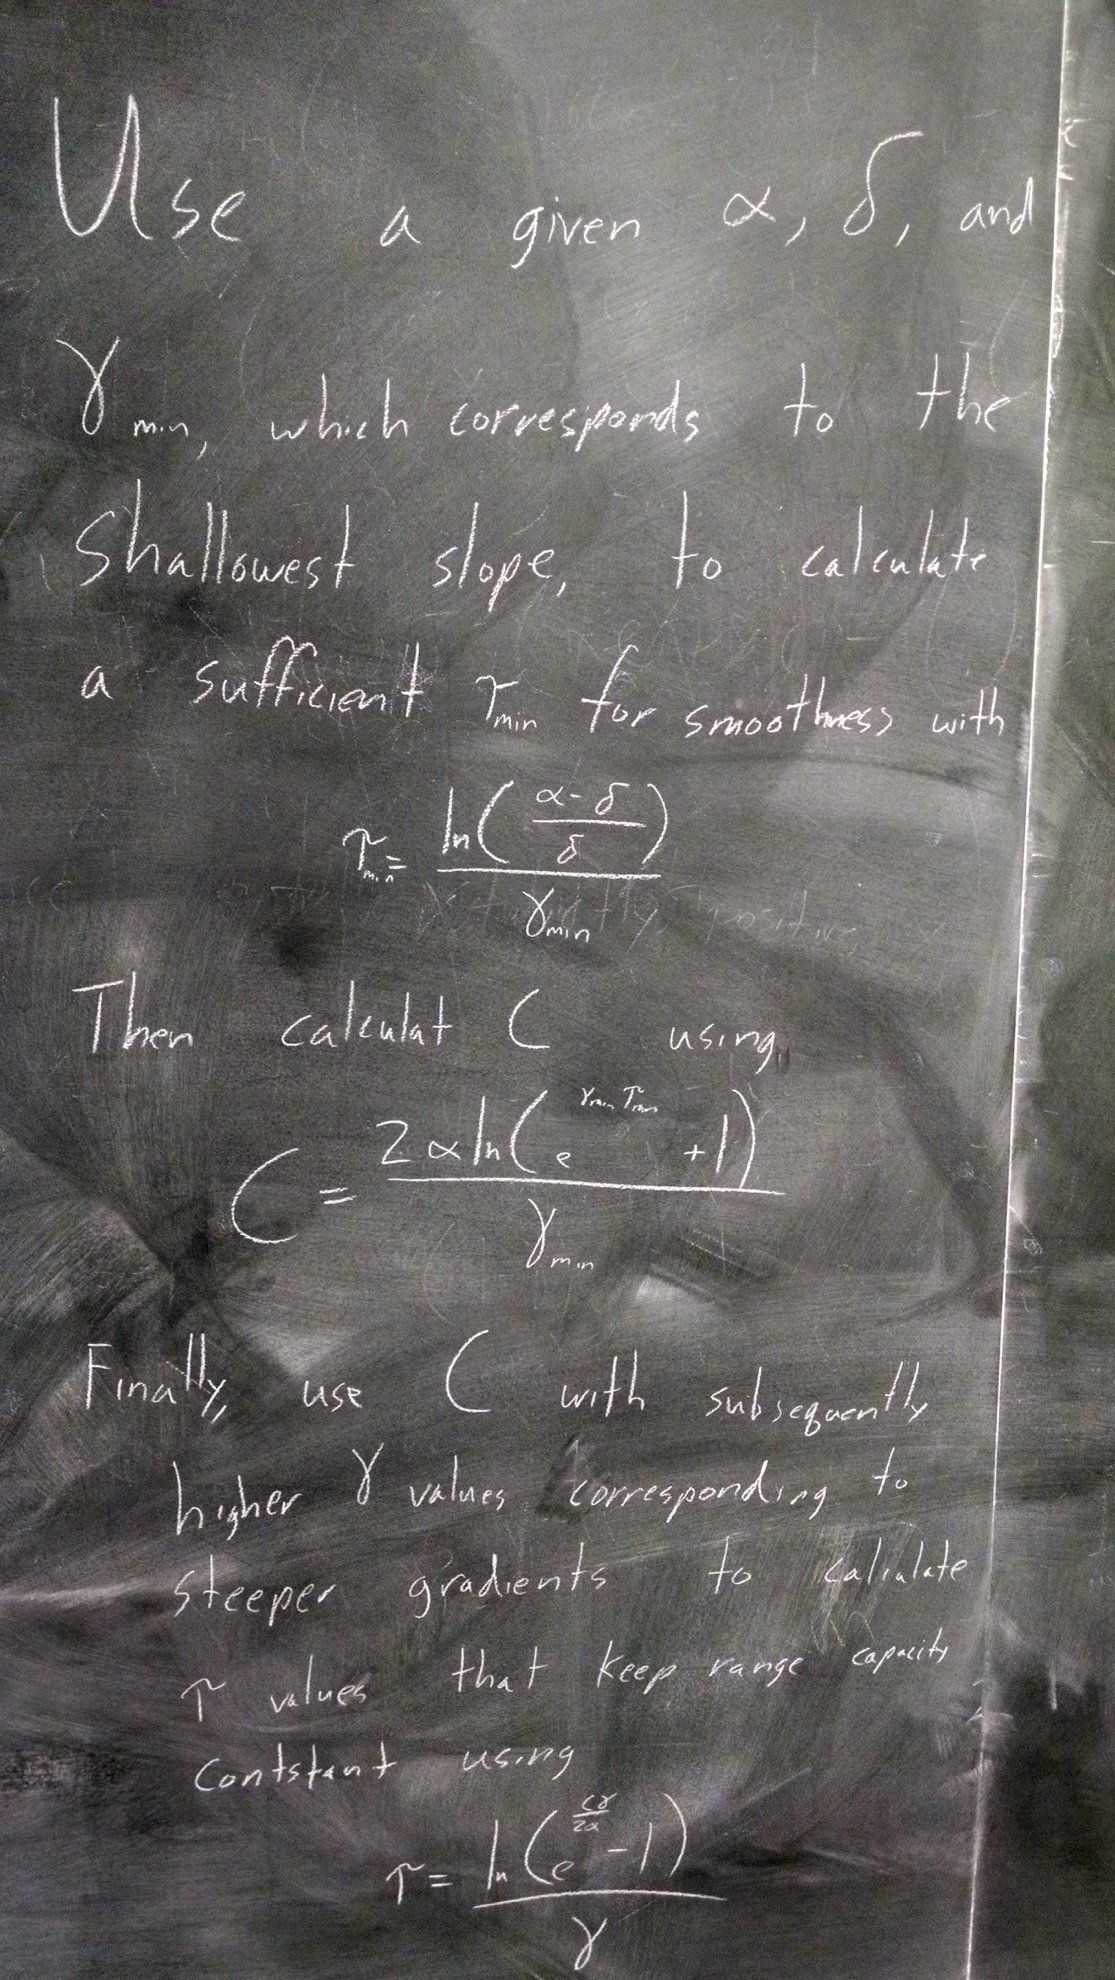 Use a given α, δ, and
γmin, which corresponds to the
shallowest slope, to calculate
a sufficient τmin for smoothness with
τmin = ln((α-δ)/δ)/γmin
Then calculat C using
C = 2αln(e^(γmin τmin) +1)/γmin
Finally, use C with subsequently
higher γ values corresponding to
steeper gradients to calculate
τ values that keep range capacity
contstant using
τ = ln(e^(Cγ/2α) -1)/γ